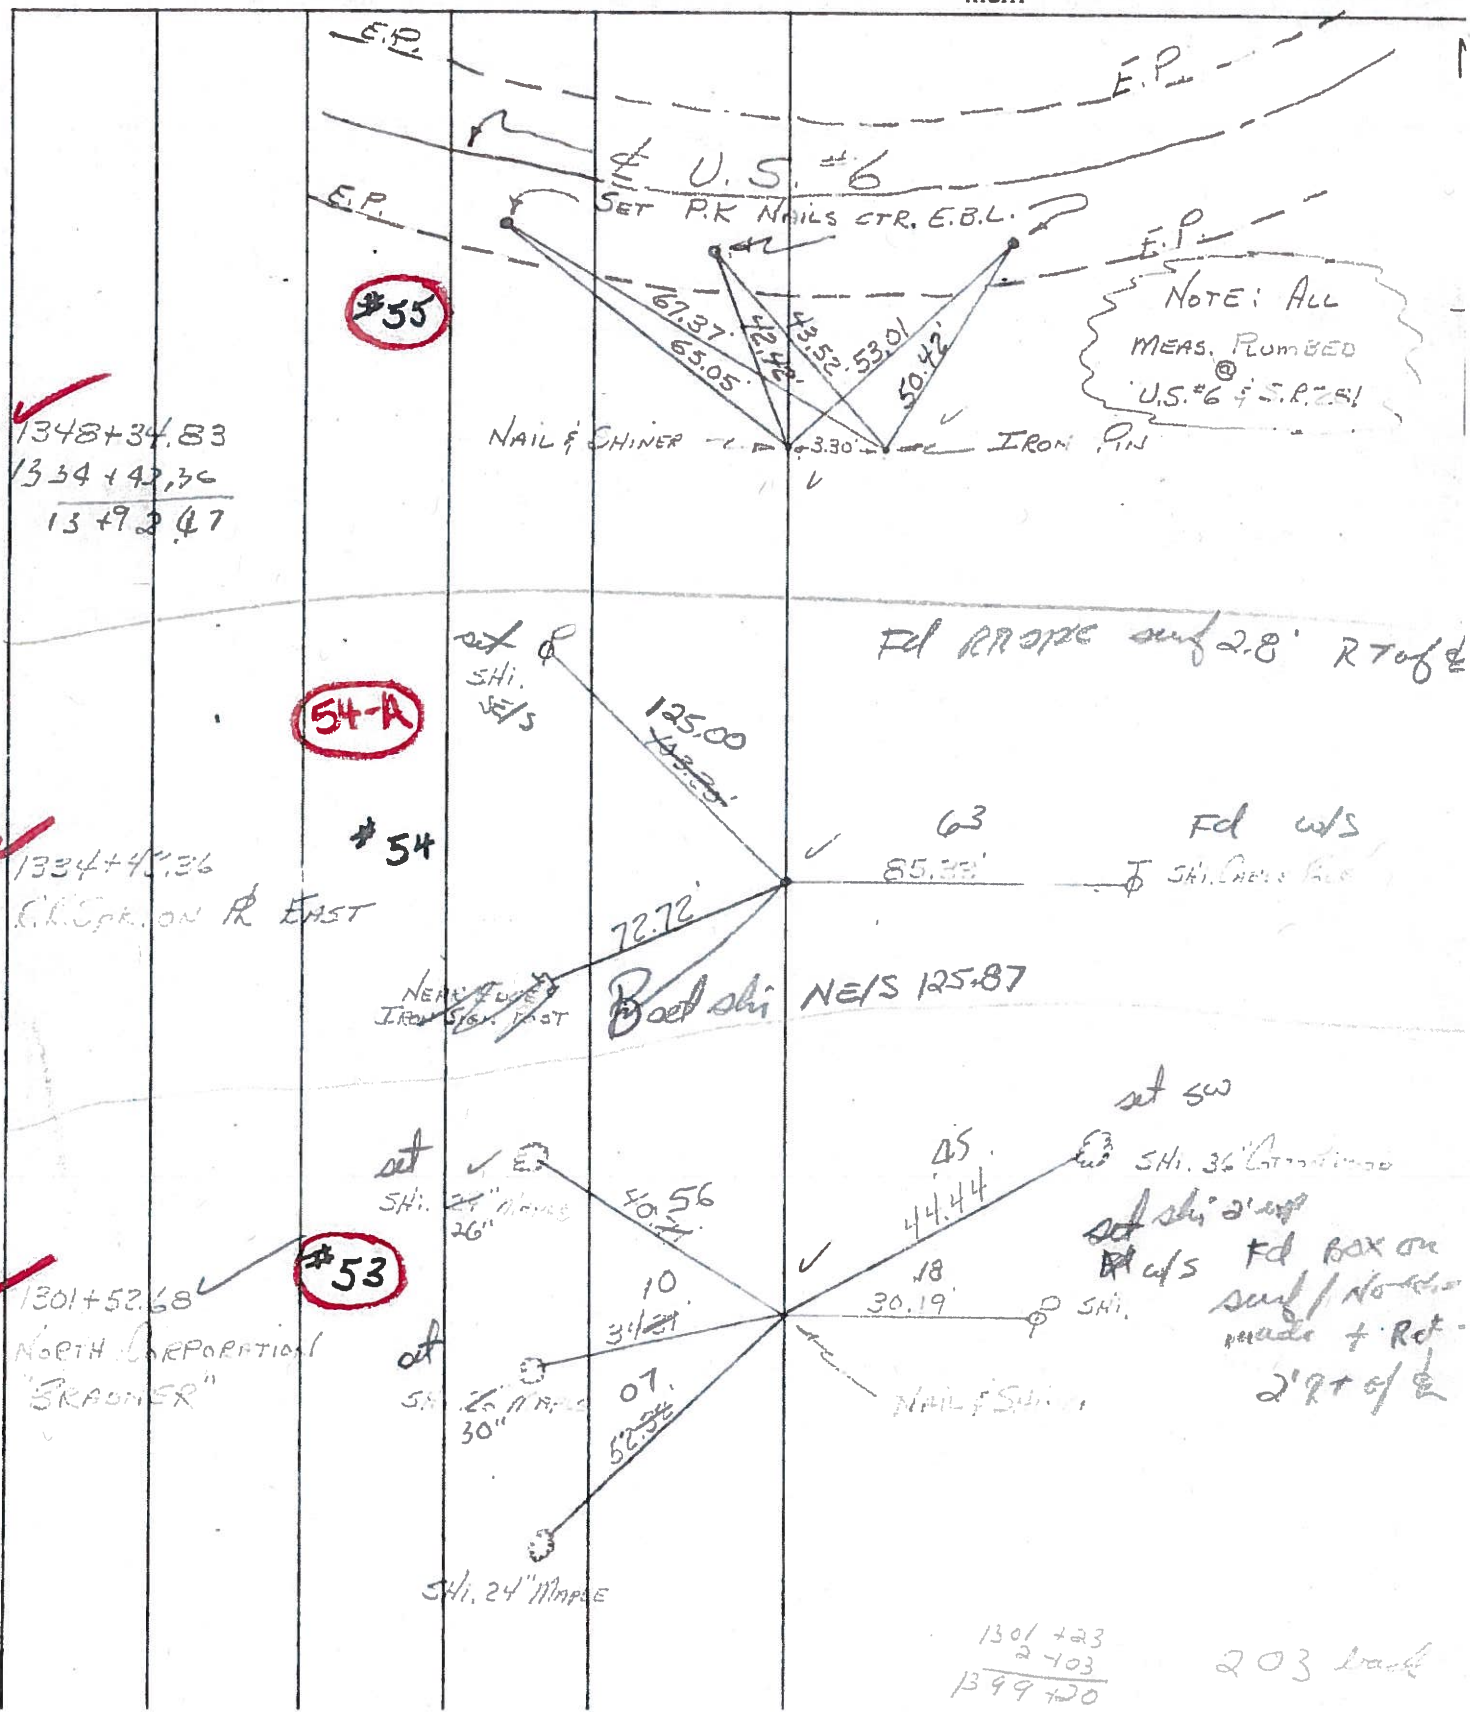 E.P.
E.P.
℄ U.S. #6
SET P.K NAILS CTR. E.B.L.
E.P.
E.P.
NOTE: ALL
MEAS. PLUMBED
@
U.S.#6 & S.R. 281
#55
67.37'
65.05'
42.42'
43.52'
53.01
50.42'
1348+34.83
1334+42,36
13+92.47
NAIL & SHINER
3.30'
IRON PIN
set
SHi.
SE/S
Fd RR spk surf 2.8' RT of ℄
54-A
125.00
#54
63
85.33'
Fd w/s
SHi. CABLE POLE
1334+42.36
R.R. SPK. ON ℄ EAST
72.72'
NEAR EDGE
IRON SIGN POST
set shi NE/S 125.87
set sw
set
SHi. 24" MAPLE
26"
40.56
45
44.44
SHi. 36"
set shi 2' up
w/s Fd Box on
surf / No
made + Ref
2' RT of ℄
#53
1301+52.68
NORTH CORPORATION
10
34
18
30.19'
SHi.
set
SHi. MAPLE
30"
07
52.
NAIL & SHINER
SHi. 24" MAPLE
1301+23
2+03
1399+20
203 back